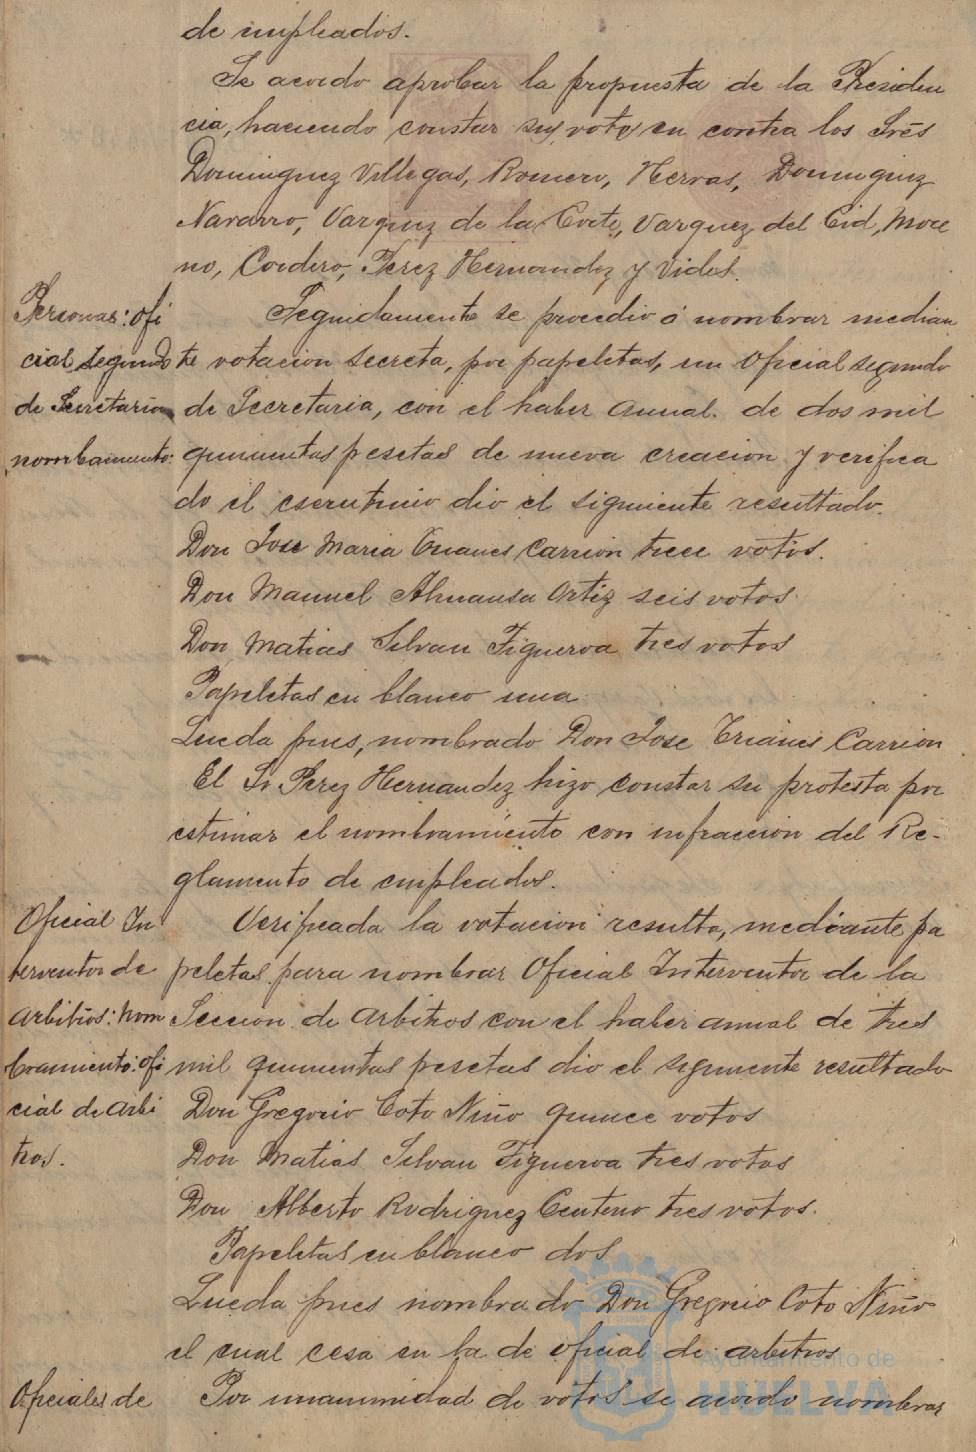 de empleados.
Se acordo aprobar la propuesta de la Presiden
cia, haciendo constar sus votos en contra los Sres
Dominguez Villegas, Romero, Hervas, Dominguez
Navarro, Vazquez de la Corte, Vazquez del Cid, More
no, Cordero, Perez Hernandez y Vides.
Personas: Ofi
cial segundo
de Secretaria
nombramiento:
Seguidamente se procedio á nombrar median
te votacion secreta, por papeletas, un Oficial segundo
de Secretaria, con el haber anual. de dos mil
quinientas pesetas de nueva creacion y verifica
do el escrutinio dio el siguiente resultado.
Don Jose Maria Trianes Carrion trece votos.
Don Manuel Almansa Ortiz seis votos
Don Matias Silvan Figueroa tres votos
Papeletas en blanco una
Queda pues, nombrado Don Jose Trianes Carrion
El Sr Perez Hernandez hizo constar su protesta por
estimar el nombramiento con infraccion del Re-
glamento de empleados.
Oficial In
terventor de
Arbitrios: Nom
bramiento: Ofi
cial de Arbi
trios.
Verificada la votacion resulta, mediante pa
peletas para nombrar Oficial Interventor de la
Seccion de Arbitros con el haber anual de tres
mil quinientas pesetas dio el siguiente resultado
Don Gregorio Coto Niño quince votos
Don Matias Silvan Figueroa tres votos
Don Alberto Rodriguez Centeno tres votos.
Papeletas en blanco dos
Queda pues nombrado Don Gregorio Coto Niño
el cual cesa en la de oficial de arbitros
Oficiales de
Por unanimidad de votos se acordo nombrar
Ayuntamiento de
HUELVA